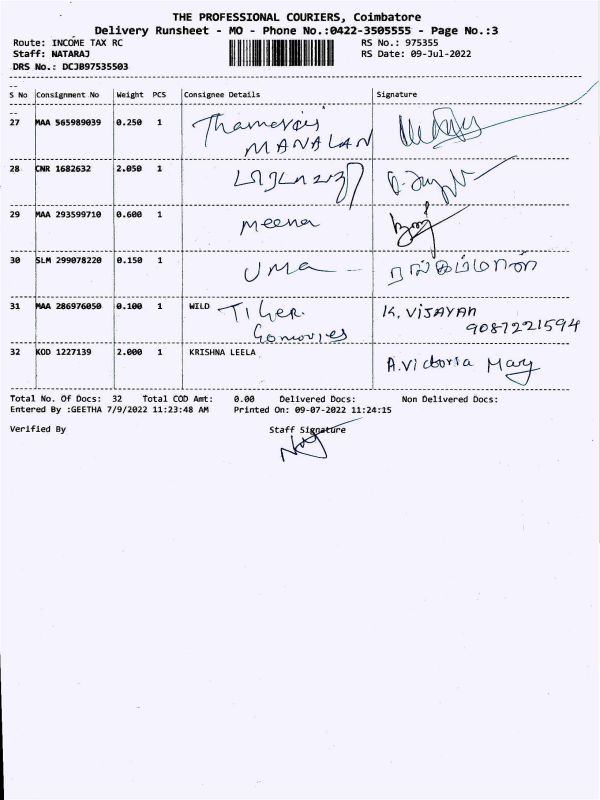 THE PROFESSIONAL COURIERS, Coimbatore
Delivery Runsheet - MO - Phone No.:0422-3505555 - Page No.:3
Route: INCOME TAX RC RS No.: 975355
Staff: NATARAJ RS Date: 09-Jul-2022
DRS No.: DCJB97535503
S No Consignment No Weight PCS Consignee Details Signature
27 MAA 565989039 0.250 1
MANALAN
28 CNR 1682632 2.050 1
29 MAA 293599710 0.600 1 Meena
30 SLM 299078220 0.150 1 Uma
31 MAA 286976050 0.100 1 WILD TIGER K. VIJAYAN
9087221594
32 KOD 1227139 2.000 1 KRISHNA LEELA A. Victoria Mary
Total No. Of Docs: 32 Total COD Amt: 0.00 Delivered Docs: Non Delivered Docs:
Entered By :GEETHA 7/9/2022 11:23:48 AM Printed On: 09-07-2022 11:24:15
Verified By Staff Signature